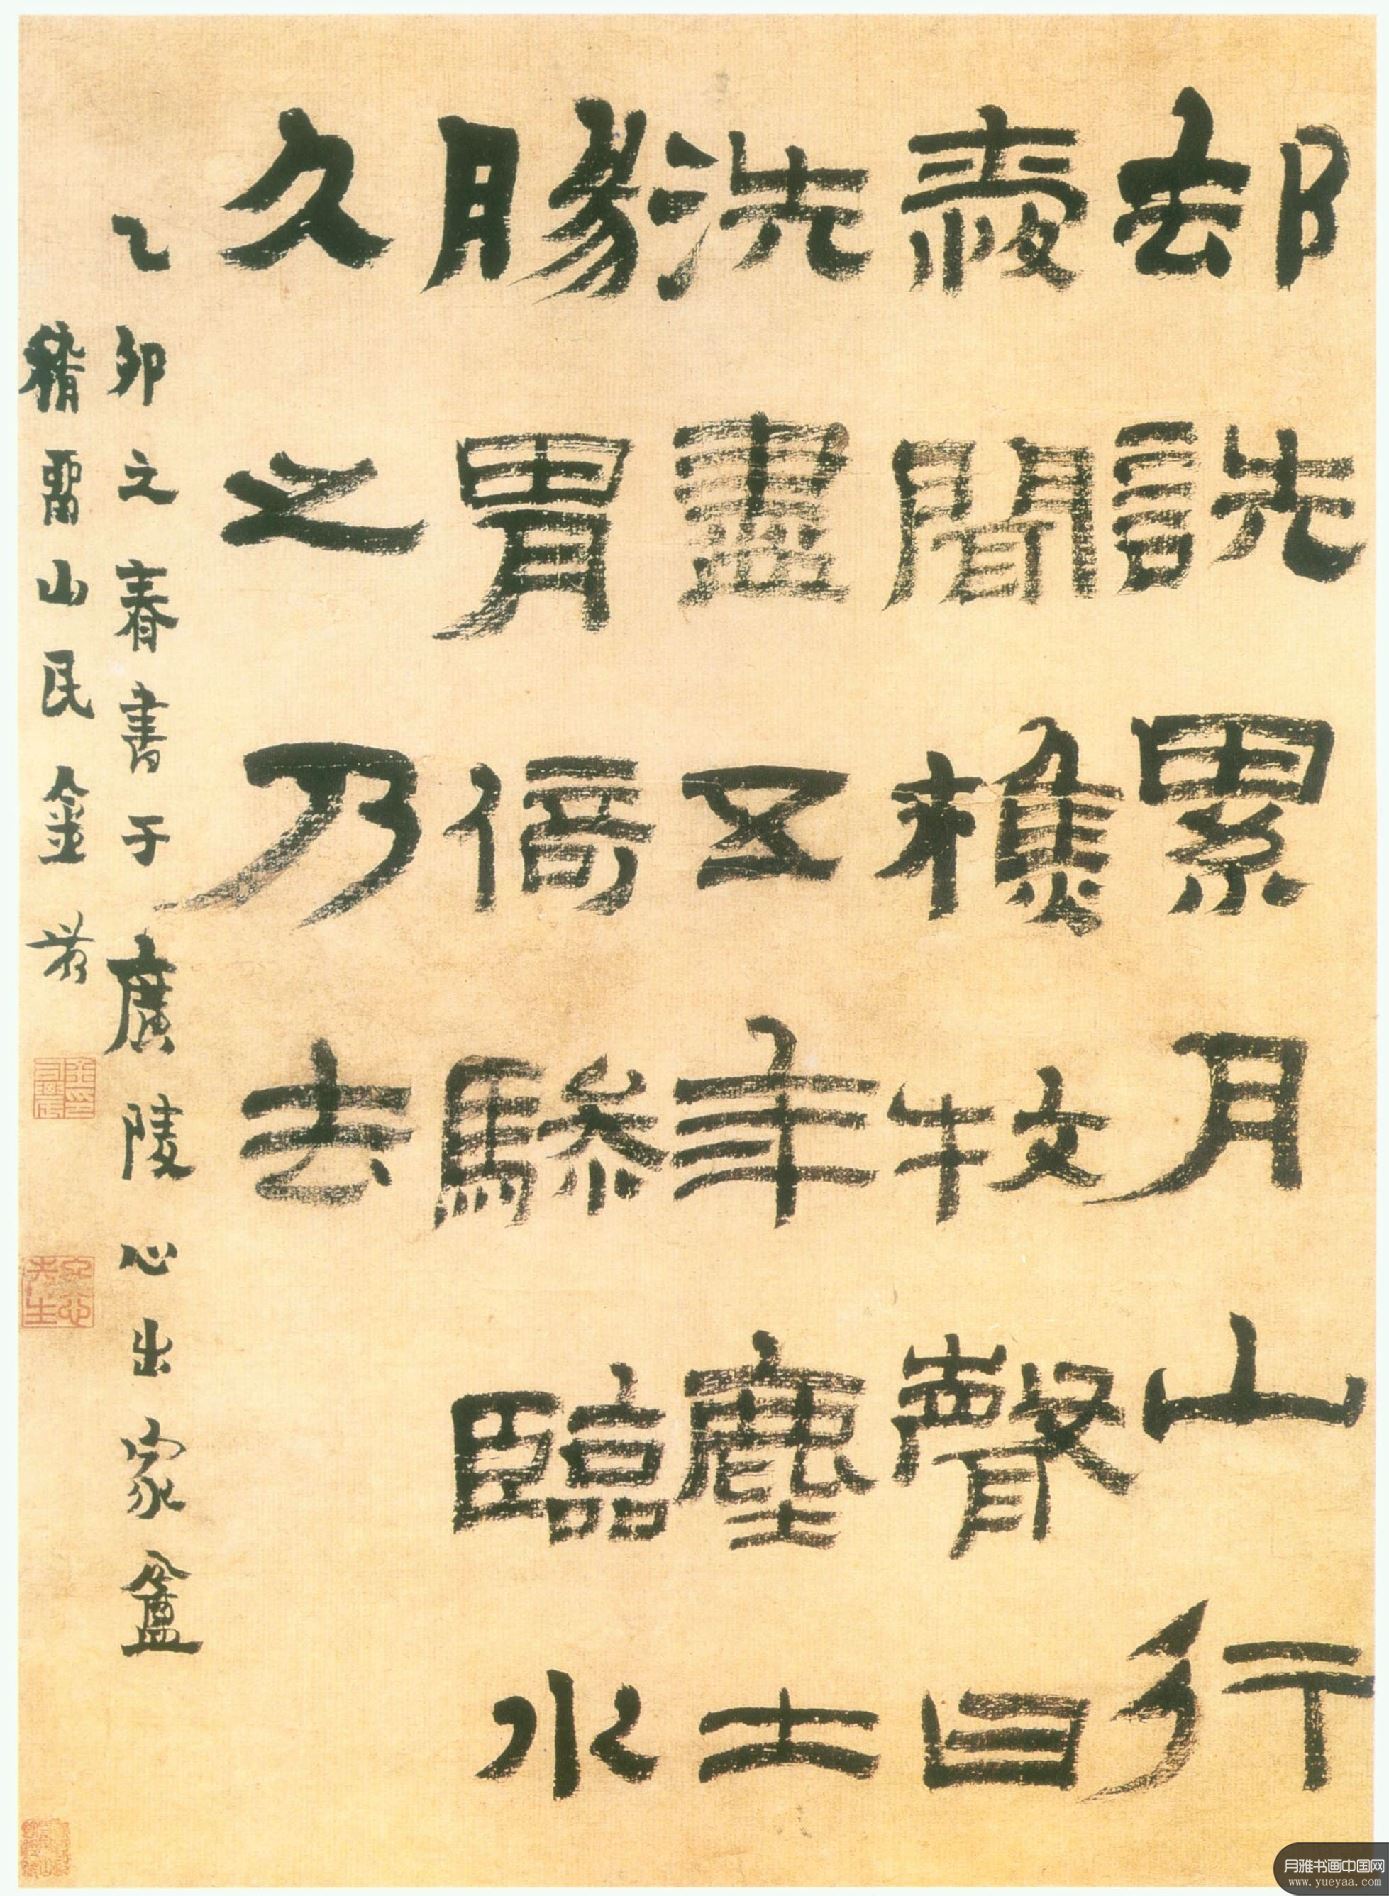 郄詵累月山行
聞樵牧聲曰
洗盡五年塵土
腸胃倚驂臨水
久之乃去
乙卯之春書于廣陵心出家盦
稽畱山民金農
冬心先生
月雅书画中国网
www.yueyaa.com